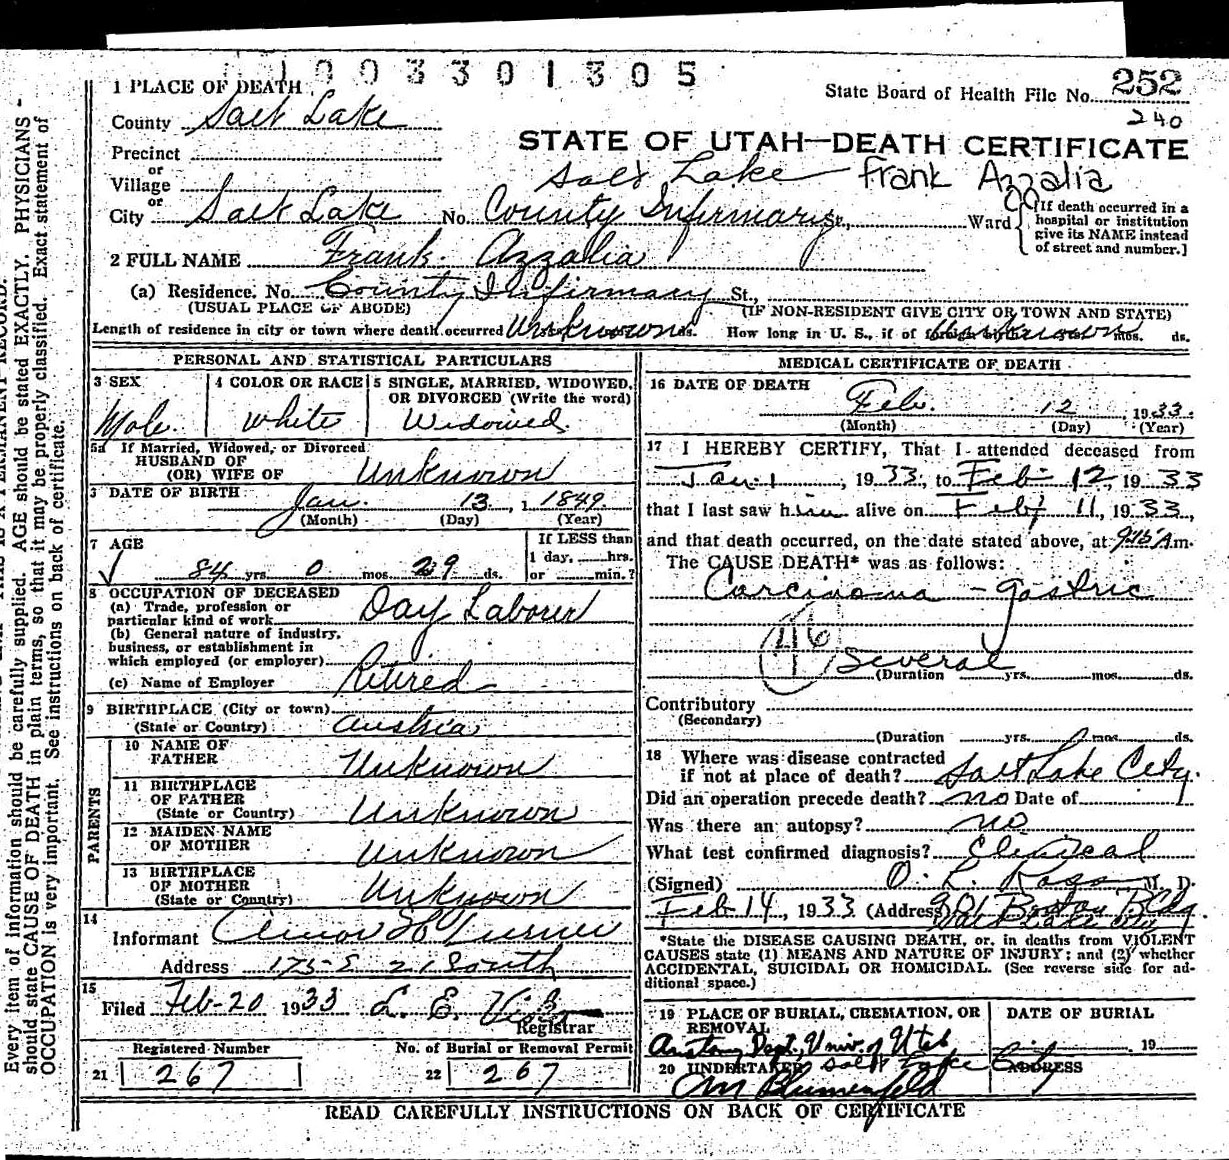 1003301305
1 PLACE OF DEATH
State Board of Health File No. 252
240
County Salt Lake
STATE OF UTAH—DEATH CERTIFICATE
Precinct
or
Village
Salt Lake Frank Azzalia
or
City Salt Lake No. County Infirmary St., Ward
[If death occurred in a
hospital or institution
give its NAME instead
of street and number.]
2 FULL NAME Frank Azzalia
(a) Residence. No. County Infirmary St.,
(USUAL PLACE OF ABODE) (IF NON-RESIDENT GIVE CITY OR TOWN AND STATE)
Length of residence in city or town where death occurred Unknown ds. How long in U. S., if of Unknown mos. ds.
PERSONAL AND STATISTICAL PARTICULARS
3 SEX
Male
4 COLOR OR RACE
White
5 SINGLE, MARRIED, WIDOWED,
OR DIVORCED (Write the word)
Widowed
5a If Married, Widowed, or Divorced
HUSBAND OF
(OR) WIFE OF Unknown
DATE OF BIRTH
Jan. 13, 1849
(Month) (Day) (Year)
7 AGE
84 yrs. 0 mos. 29 ds.
If LESS than
1 day, hrs.
or min.?
8 OCCUPATION OF DECEASED
(a) Trade, profession or
particular kind of work Day Laborer
(b) General nature of industry,
business, or establishment in
which employed (or employer)
(c) Name of Employer Retired
9 BIRTHPLACE (City or town)
(State or Country) Austria
PARENTS
10 NAME OF
FATHER Unknown
11 BIRTHPLACE
OF FATHER
(State or Country) Unknown
12 MAIDEN NAME
OF MOTHER Unknown
13 BIRTHPLACE
OF MOTHER
(State or Country) Unknown
14
Informant
Address 175 E 21 South
15
Filed Feb-20 1933 L. E.
Registrar
Registered Number No. of Burial or Removal Permit
21 267 22 267
MEDICAL CERTIFICATE OF DEATH
16 DATE OF DEATH
Feb. 12, 1933.
(Month) (Day) (Year)
17 I HEREBY CERTIFY, That I attended deceased from
Jan. 1, 1933, to Feb 12, 1933
that I last saw him alive on Feby 11, 1933,
and that death occurred, on the date stated above, at 9:15 A m.
The CAUSE DEATH* was as follows:
Carcinoma - gastric
46
Several
(Duration yrs. mos. ds.
Contributory
(Secondary)
(Duration yrs. mos. ds.
18 Where was disease contracted
if not at place of death? Salt Lake City.
Did an operation precede death? no Date of
Was there an autopsy? no
What test confirmed diagnosis? Clinical
(Signed) O. L. Ross M. D.
Feb 14, 1933 (Address) 901 Boston Bldg.
Salt Lake City
*State the DISEASE CAUSING DEATH, or, in deaths from VIOLENT
CAUSES state (1) MEANS AND NATURE OF INJURY; and (2) whether
ACCIDENTAL, SUICIDAL OR HOMICIDAL. (See reverse side for ad-
ditional space.)
19 PLACE OF BURIAL, CREMATION, OR
REMOVAL
DATE OF BURIAL
Anatomy Dept., Univ. of Utah, 19
Salt Lake City
20 UNDERTAKER ADDRESS
Blumenfeld
READ CAREFULLY INSTRUCTIONS ON BACK OF CERTIFICATE
Every item of information should be carefully supplied. AGE should be stated EXACTLY. PHYSICIANS
should state CAUSE OF DEATH in plain terms, so that it may be properly classified. Exact statement of
OCCUPATION is very important. See instructions on back of certificate.